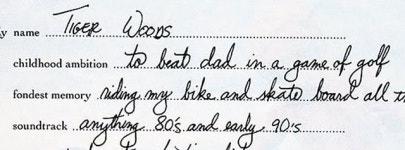 name TIGER WOODS
childhood ambition to beat dad in a game of golf
fondest memory riding my bike and skate board all
soundtrack anything 80's and early 90's